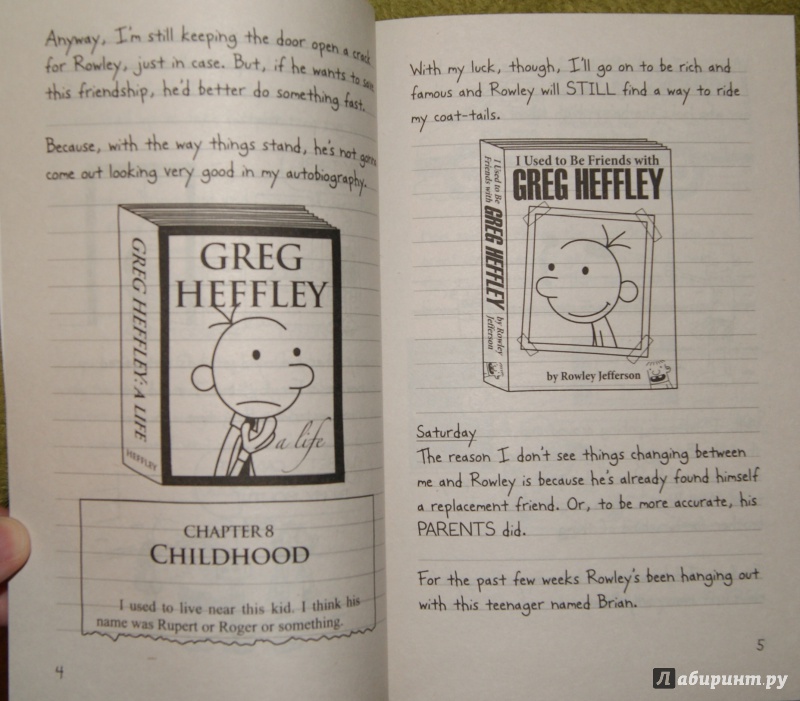 Anyway, I'm still keeping the door open a crack
for Rowley, just in case. But, if he wants to save
this friendship, he'd better do something fast.
Because, with the way things stand, he's not gonna
come out looking very good in my autobiography.
GREG HEFFLEY: A LIFE
HEFFLEY
GREG
HEFFLEY
a life
CHAPTER 8
CHILDHOOD
I used to live near this kid. I think his
name was Rupert or Roger or something.
4
With my luck, though, I'll go on to be rich and
famous and Rowley will STILL find a way to ride
my coat-tails.
I Used to Be
Friends with
GREG HEFFLEY
by Rowley
Jefferson
I Used to Be Friends with
GREG HEFFLEY
by Rowley Jefferson
Saturday
The reason I don't see things changing between
me and Rowley is because he's already found himself
a replacement friend. Or, to be more accurate, his
PARENTS did.
For the past few weeks Rowley's been hanging out
with this teenager named Brian.
5
Лабиринт.ру